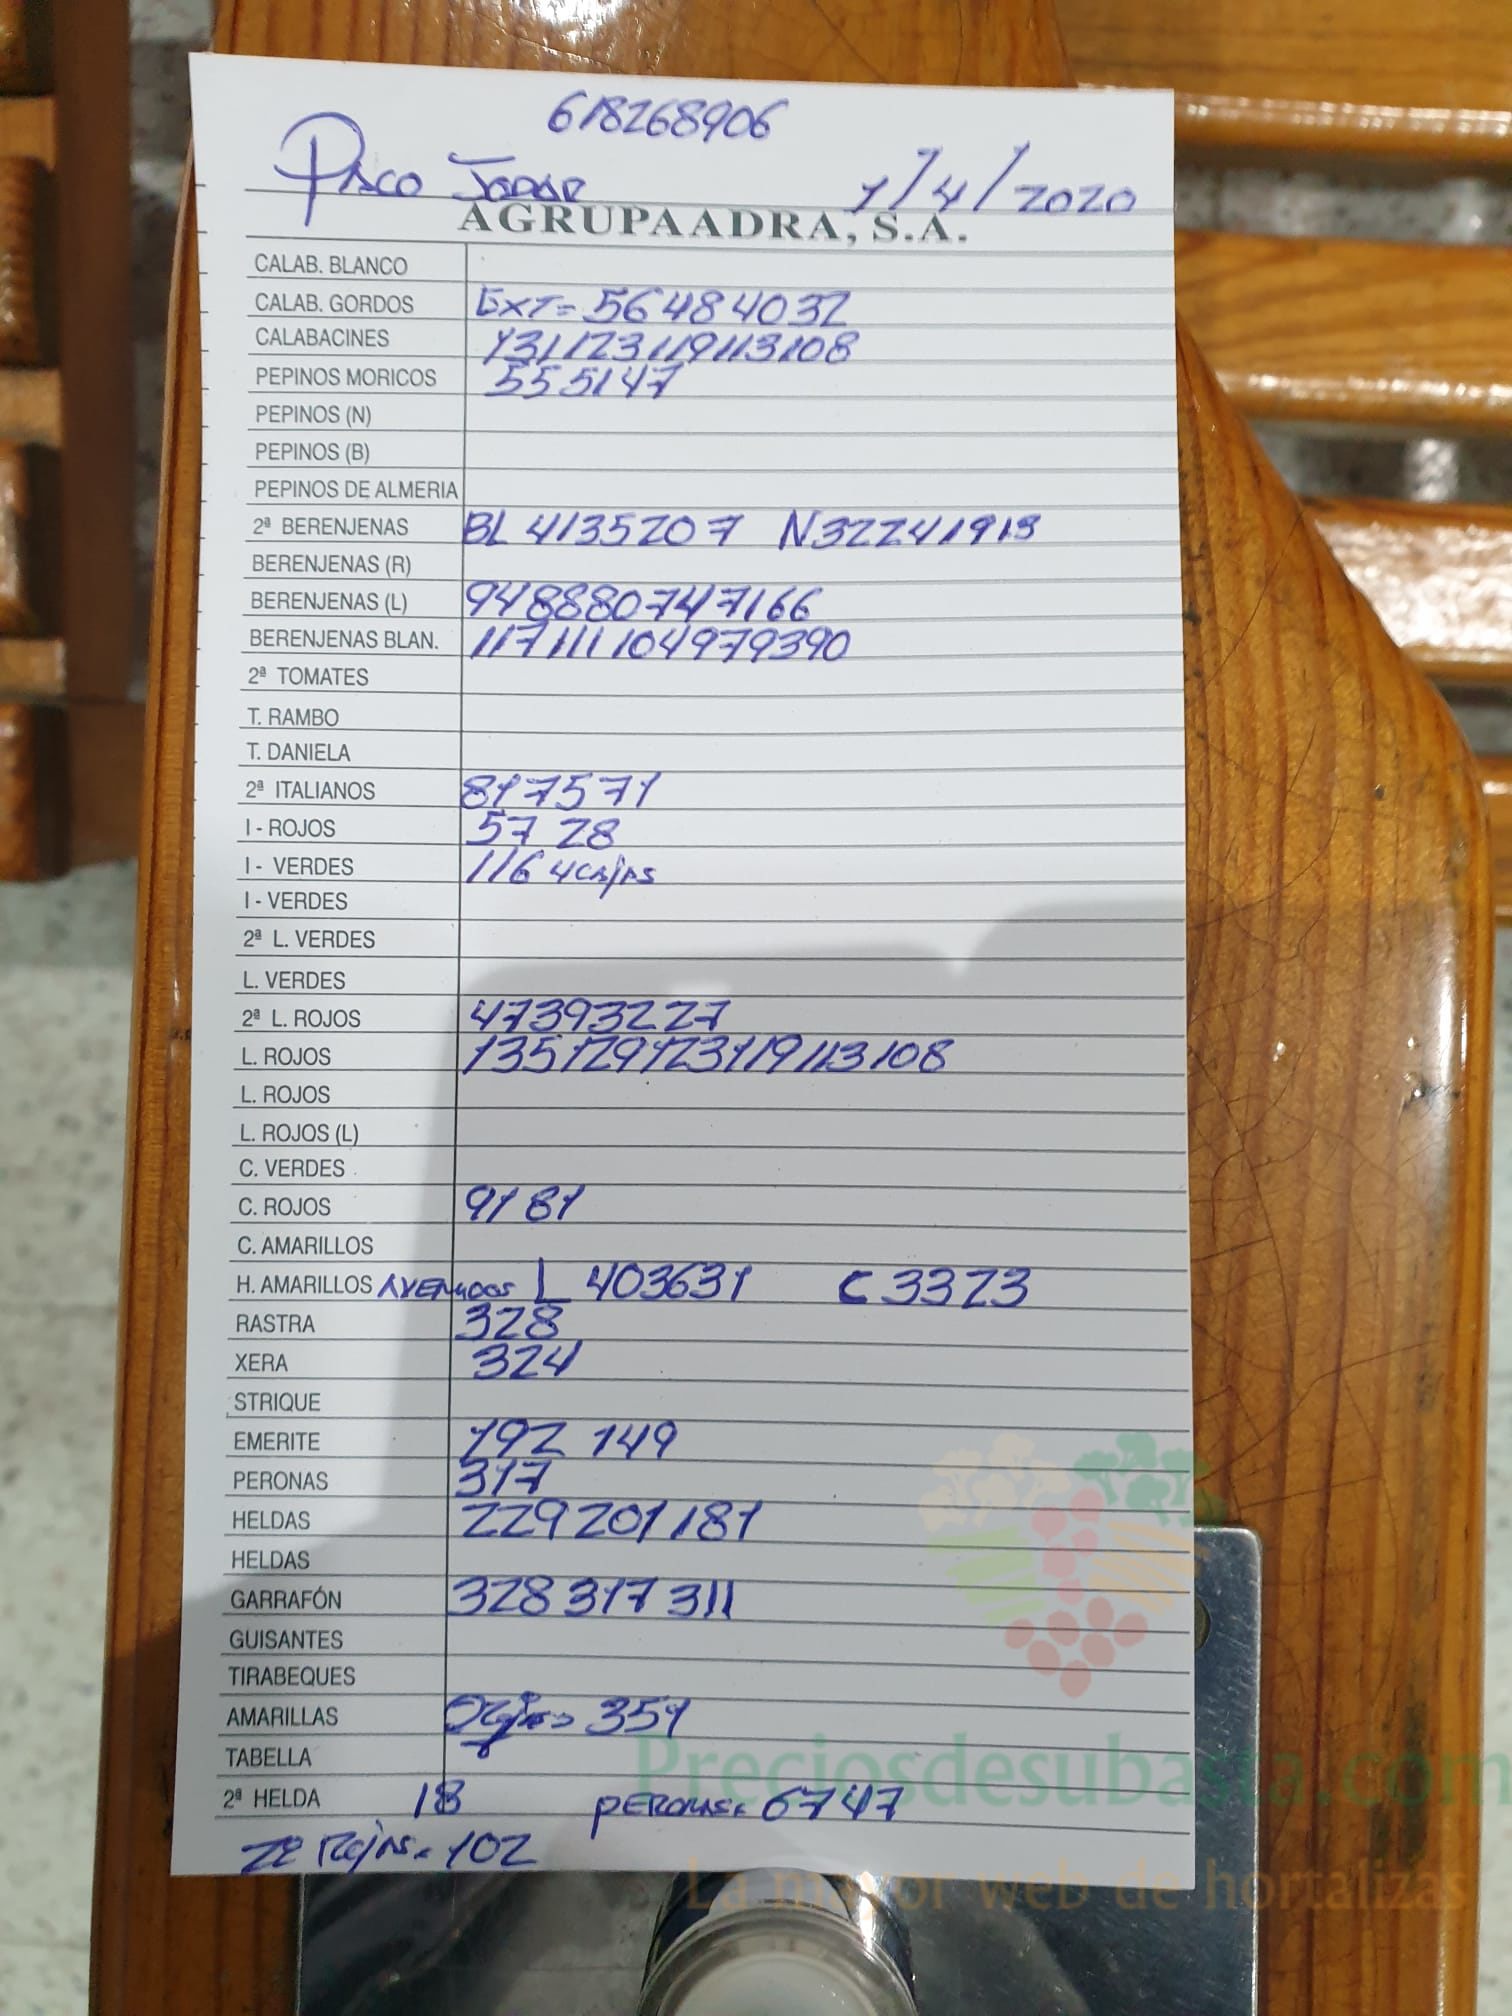 618268906
Paco Jodar 1/4/2020
AGRUPAADRA, S.A.
CALAB. BLANCO
CALAB. GORDOS Ext= 56484032
CALABACINES 131123119113108
PEPINOS MORICOS 555147
PEPINOS (N)
PEPINOS (B)
PEPINOS DE ALMERIA
2ª BERENJENAS BL 4135207 N32241913
BERENJENAS (R)
BERENJENAS (L) 948880747166
BERENJENAS BLAN. 117111104979390
2ª TOMATES
T. RAMBO
T. DANIELA
2ª ITALIANOS 817571
I - ROJOS 57 28
I - VERDES 116 4 cajas
I - VERDES
2ª L. VERDES
L. VERDES
2ª L. ROJOS 47393227
L. ROJOS 135129123119113108
L. ROJOS
L. ROJOS (L)
C. VERDES
C. ROJOS 91 81
C. AMARILLOS
H. AMARILLOS L 403631 C 3323
RASTRA 328
XERA 324
STRIQUE
EMERITE 192 149
PERONAS 317
HELDAS 229201181
HELDAS
GARRAFÓN 328 317 311
GUISANTES
TIRABEQUES
AMARILLAS 351
TABELLA
2ª HELDA 18 peronas= 6747
2ª Rojas = 102
Preciosdesubasta.com
La mayor web de hortalizas